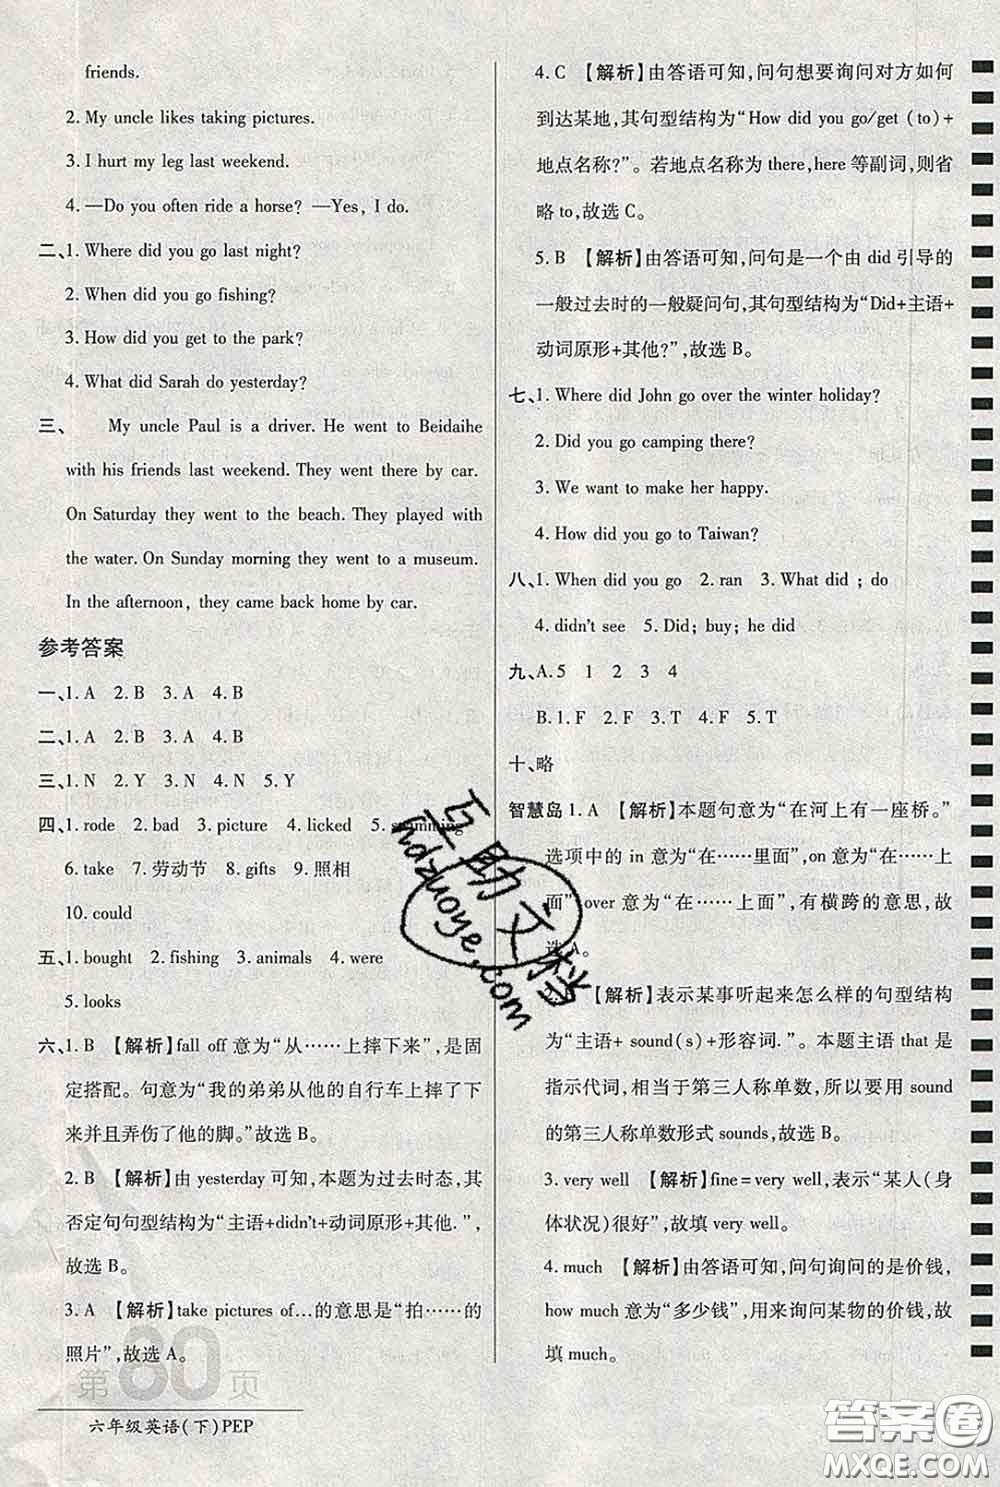 friends.
2. My uncle likes taking pictures.
3. I hurt my leg last weekend.
4. —Do you often ride a horse? —Yes, I do.
二、1. Where did you go last night?
2. When did you go fishing?
3. How did you get to the park?
4. What did Sarah do yesterday?
三、 My uncle Paul is a driver. He went to Beidaihe
with his friends last weekend. They went there by car.
On Saturday they went to the beach. They played with
the water. On Sunday morning they went to a museum.
In the afternoon, they came back home by car.
参考答案
一、1. A 2. B 3. A 4. B
二、1. A 2. B 3. A 4. B
三、1. N 2. Y 3. N 4. N 5. Y
四、1. rode 2. bad 3. picture 4. licked 5. swimming
6. take 7. 劳动节 8. gifts 9. 照相
10. could
五、1. bought 2. fishing 3. animals 4. were
5. looks
六、1. B 【解析】fall off 意为“从……上摔下来”,是固
定搭配。句意为“我的弟弟从他的自行车上摔了下
来并且弄伤了他的脚。”故选 B。
2. B 【解析】由 yesterday 可知,本题为过去时态,其
否定句句型结构为“主语+didn't+动词原形+其他.”,
故选 B。
3. A 【解析】take pictures of…的意思是“拍……的
照片”,故选 A。
第80页
六年级英语(下)PEP
4. C 【解析】由答语可知,问句想要询问对方如何
到达某地,其句型结构为“How did you go/get (to)+
地点名称?”。若地点名称为 there, here 等副词,则省
略 to,故选 C。
5. B 【解析】由答语可知,问句是一个由 did 引导的
一般过去时的一般疑问句,其句型结构为“Did+主语+
动词原形+其他?”,故选 B。
七、1. Where did John go over the winter holiday?
2. Did you go camping there?
3. We want to make her happy.
4. How did you go to Taiwan?
八、1. When did you go 2. ran 3. What did ; do
4. didn't see 5. Did; buy; he did
九、A. 5 1 2 3 4
B. 1. F 2. F 3. T 4. F 5. T
十、略
智慧岛 1. A 【解析】本题句意为“在河上有一座桥。”
选项中的 in 意为“在……里面”,on 意为“在……上
面”,over 意为“在……上面”,有横跨的意思,故
选 A。
【解析】表示某事听起来怎么样的句型结构
为“主语+ sound(s)+形容词.”。本题主语 that 是
指示代词,相当于第三人称单数,所以要用 sound
的第三人称单数形式 sounds,故选 B。
3. very well 【解析】fine=very well,表示“某人(身
体状况)很好”,故填 very well。
4. much 【解析】由答语可知,问句询问的是价钱,
how much 意为“多少钱”,用来询问某物的价钱,故
填 much。
互助文档
hdzuoye.com
答案圈
MXQE.COM